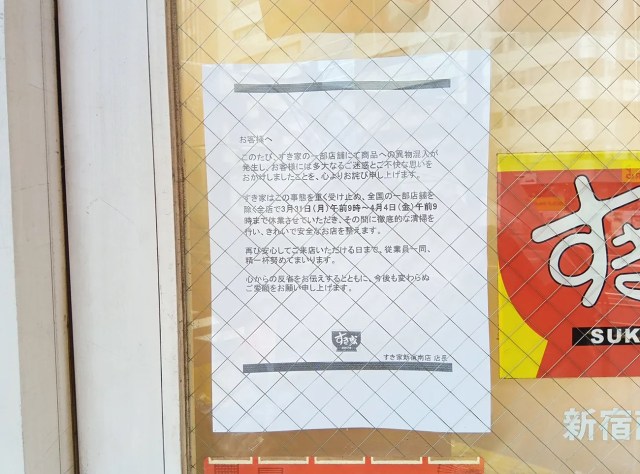 お客様へ
このたび、すき家の一部店舗にて商品への異物混入が
発生し、お客様には多大なるご迷惑とご不快な思いを
おかけしましたことを、心よりお詫び申し上げます。
すき家はこの事態を重く受け止め、全国の一部店舗を
除く全店で3月31日(月)午前9時～4月4日(金)午前9
時まで休業させていただき、その間に徹底的な清掃を
行い、きれいで安全なお店を整えます。
再び安心してご来店いただける日まで、従業員一同、
精一杯努めてまいります。
心からの反省をお伝えするとともに、今後も変わらぬ
ご愛顧をお願い申し上げます。
すき家
すき家新宿南店 店長
すき
SUK
新宿